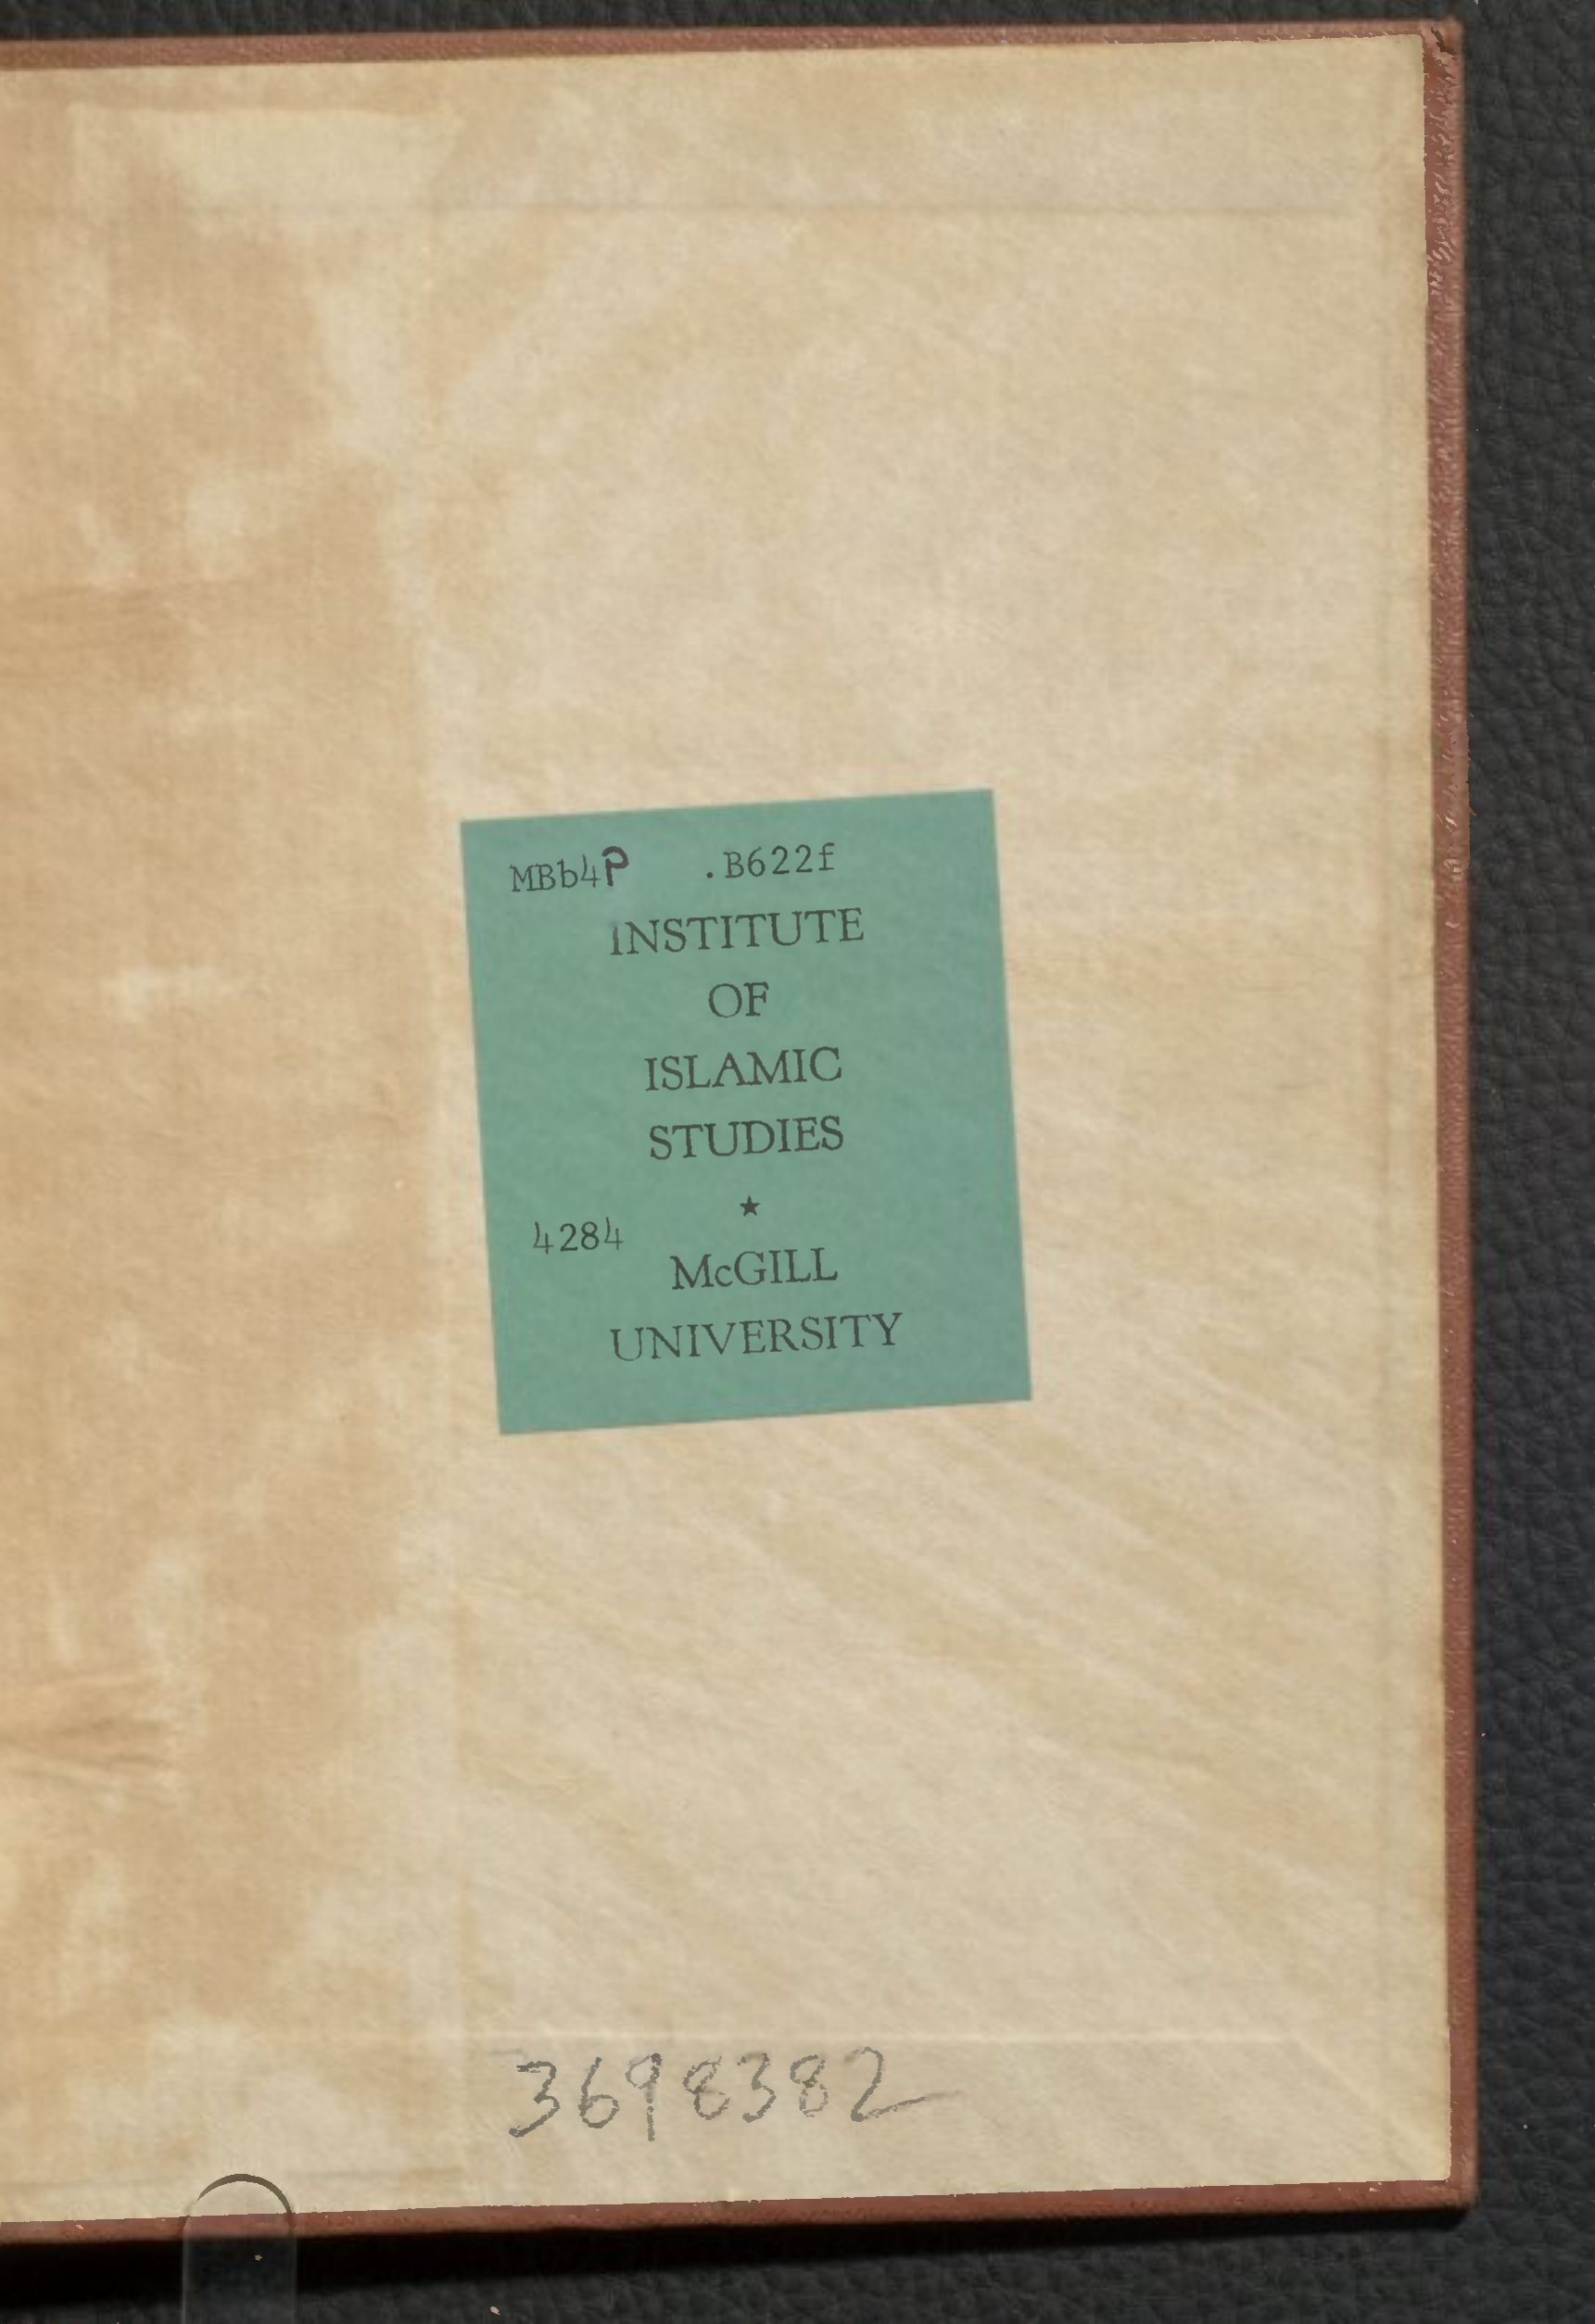 MBb4P .B622f
INSTITUTE
OF
ISLAMIC
STUDIES
★
4284
McGILL
UNIVERSITY
3698382